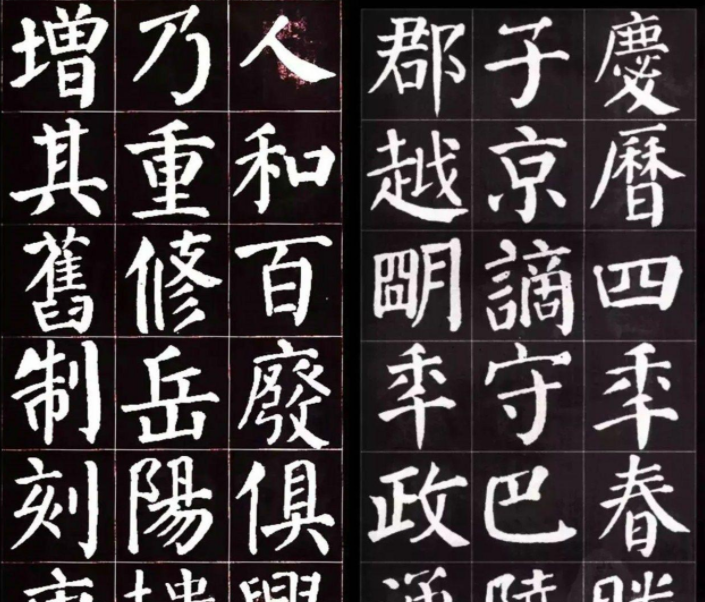 慶曆四年春
子京謫守巴
郡越明年政
人和百廢俱
乃重修岳陽
增其舊制刻